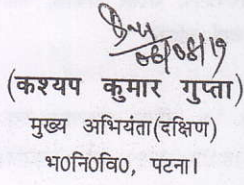 (कश्यप कुमार गुप्ता)
मुख्य अभियंता(दक्षिण)
भ०नि०वि०, पटना।